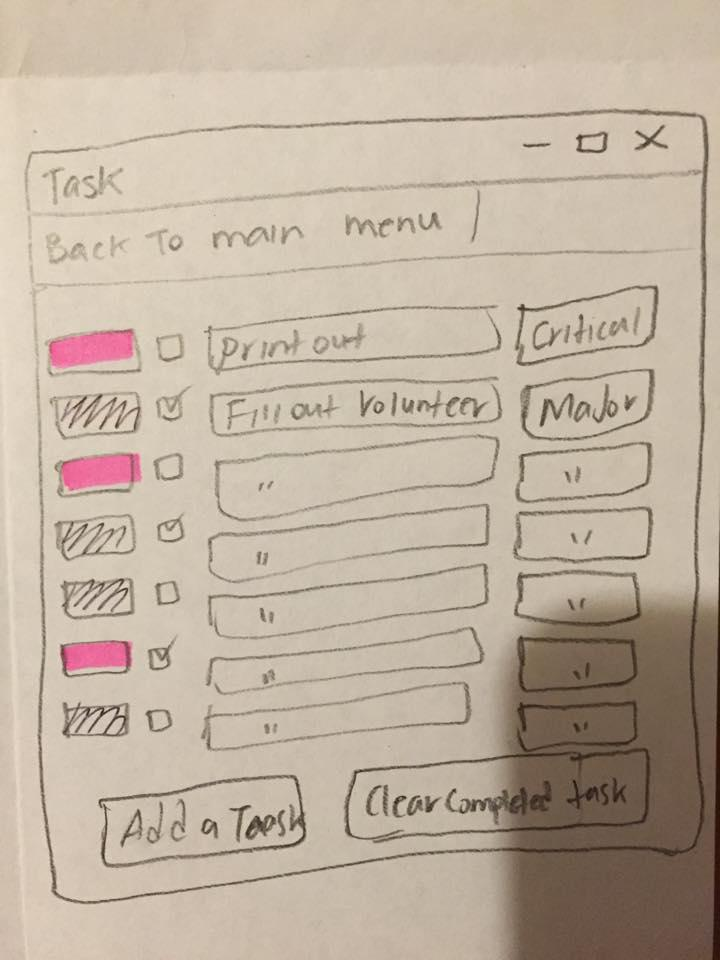 Task
Back To main menu
Print out Critical
Fill out Volunteer Major
" "
" "
" "
" "
" "
Add a Taesk Clear Completed task